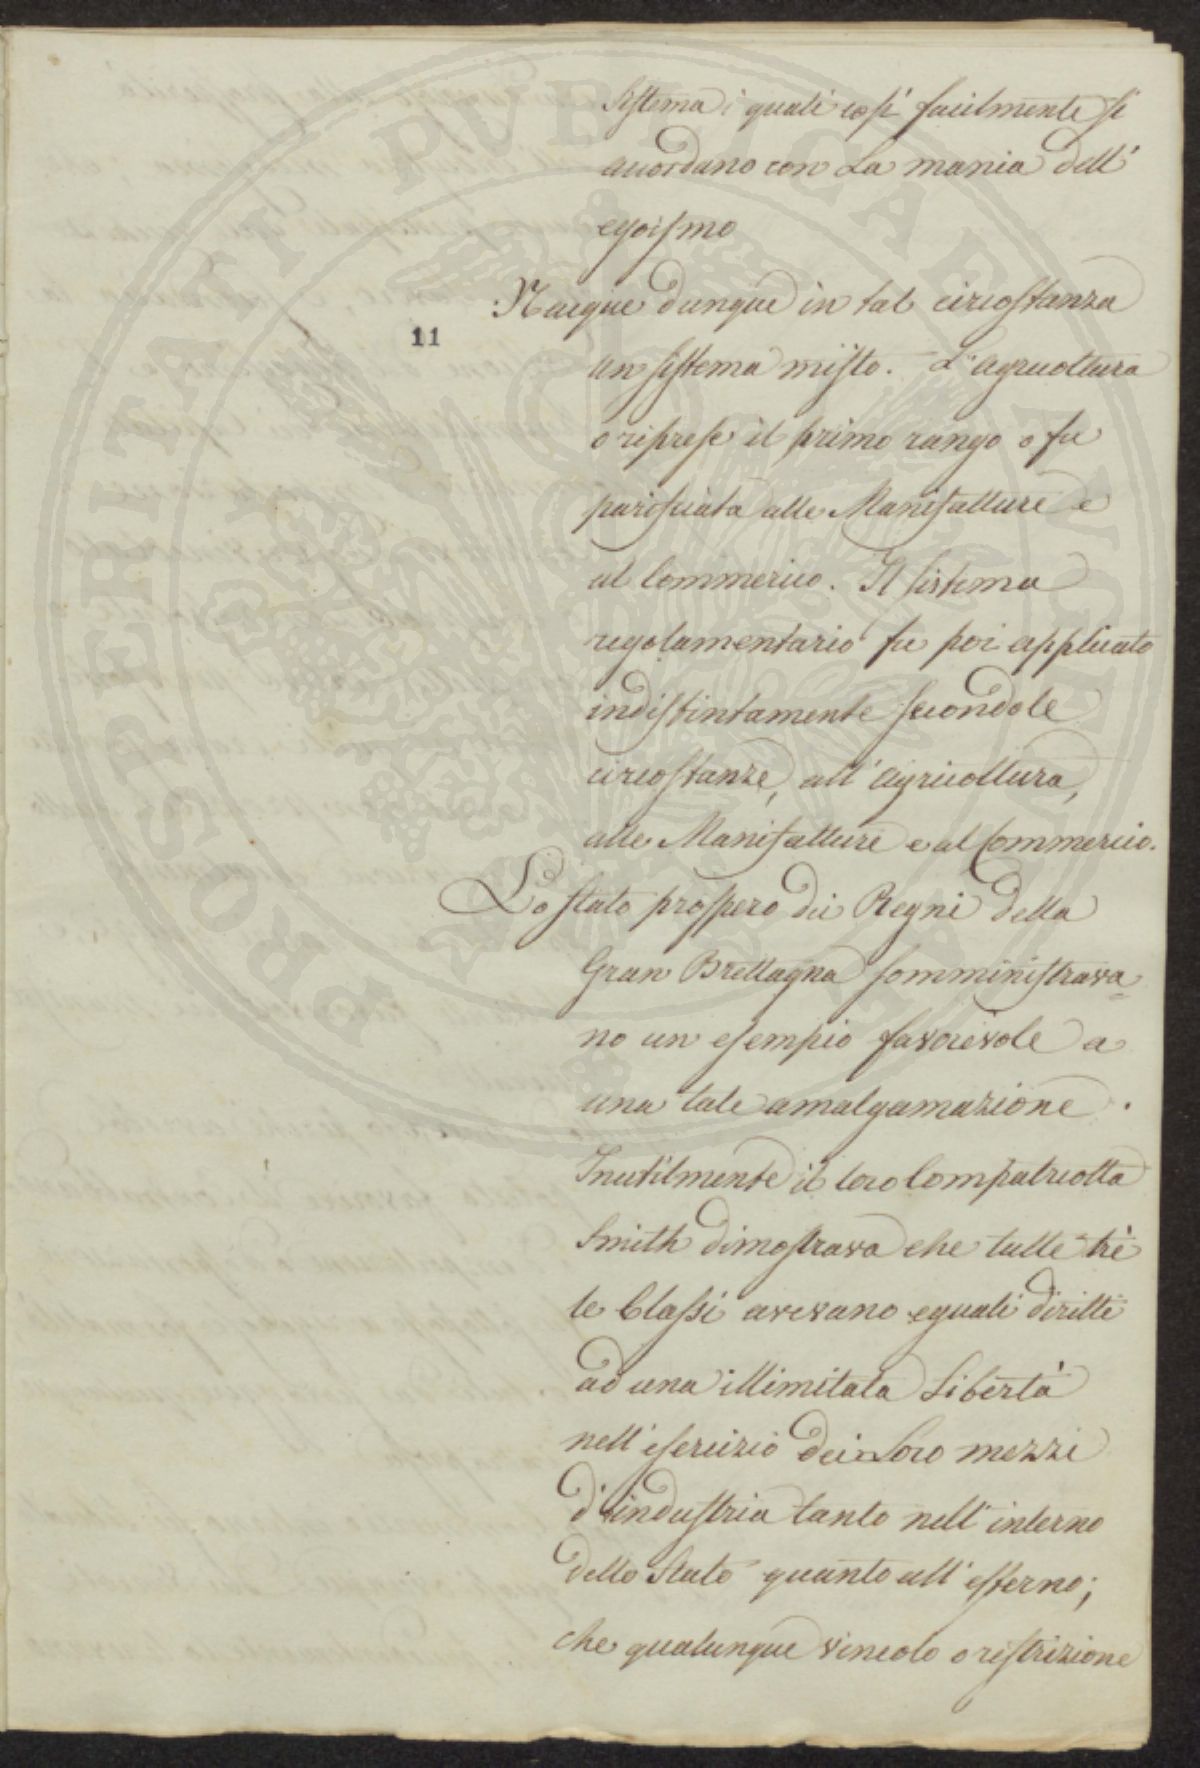 PROSPERITATI PUBLICAE AUGENDAE
Sistema i quali così facilmente si
accordano con La mania dell'
egoismo
Nacque dunque in tal circostanza
11
un sistema misto. L'agricoltura
o riprese il primo rango o fu
parificata alle Manifatture e
al Commercio. Il sistema
regolamentario fu poi applicato
indistintamente secondo le
circostanze, all'agricoltura,
alle Manifatture e al Commercio.
Lo stato prospero dei Regni della
Gran Brettagna somministrava=
no un esempio favorevole a
una tale amalgamazione.
Inutilmente il loro Compatriotta
Smith dimostrava che tutte trè
le Classi avevano eguali diritti
ad una illimitata Libertà
nell'esercizio dei Loro mezzi
d'industria tanto nell'interno
dello Stato quanto all'esterno;
che qualunque vincolo o restrizione